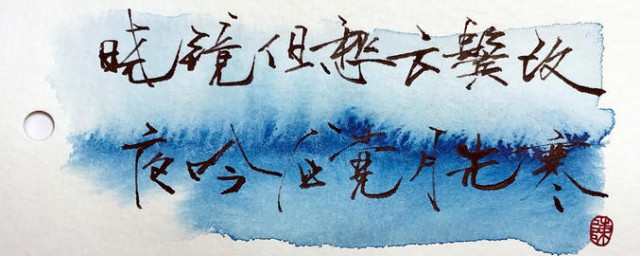 晓镜但愁云鬓改
夜吟应觉月光寒
陳